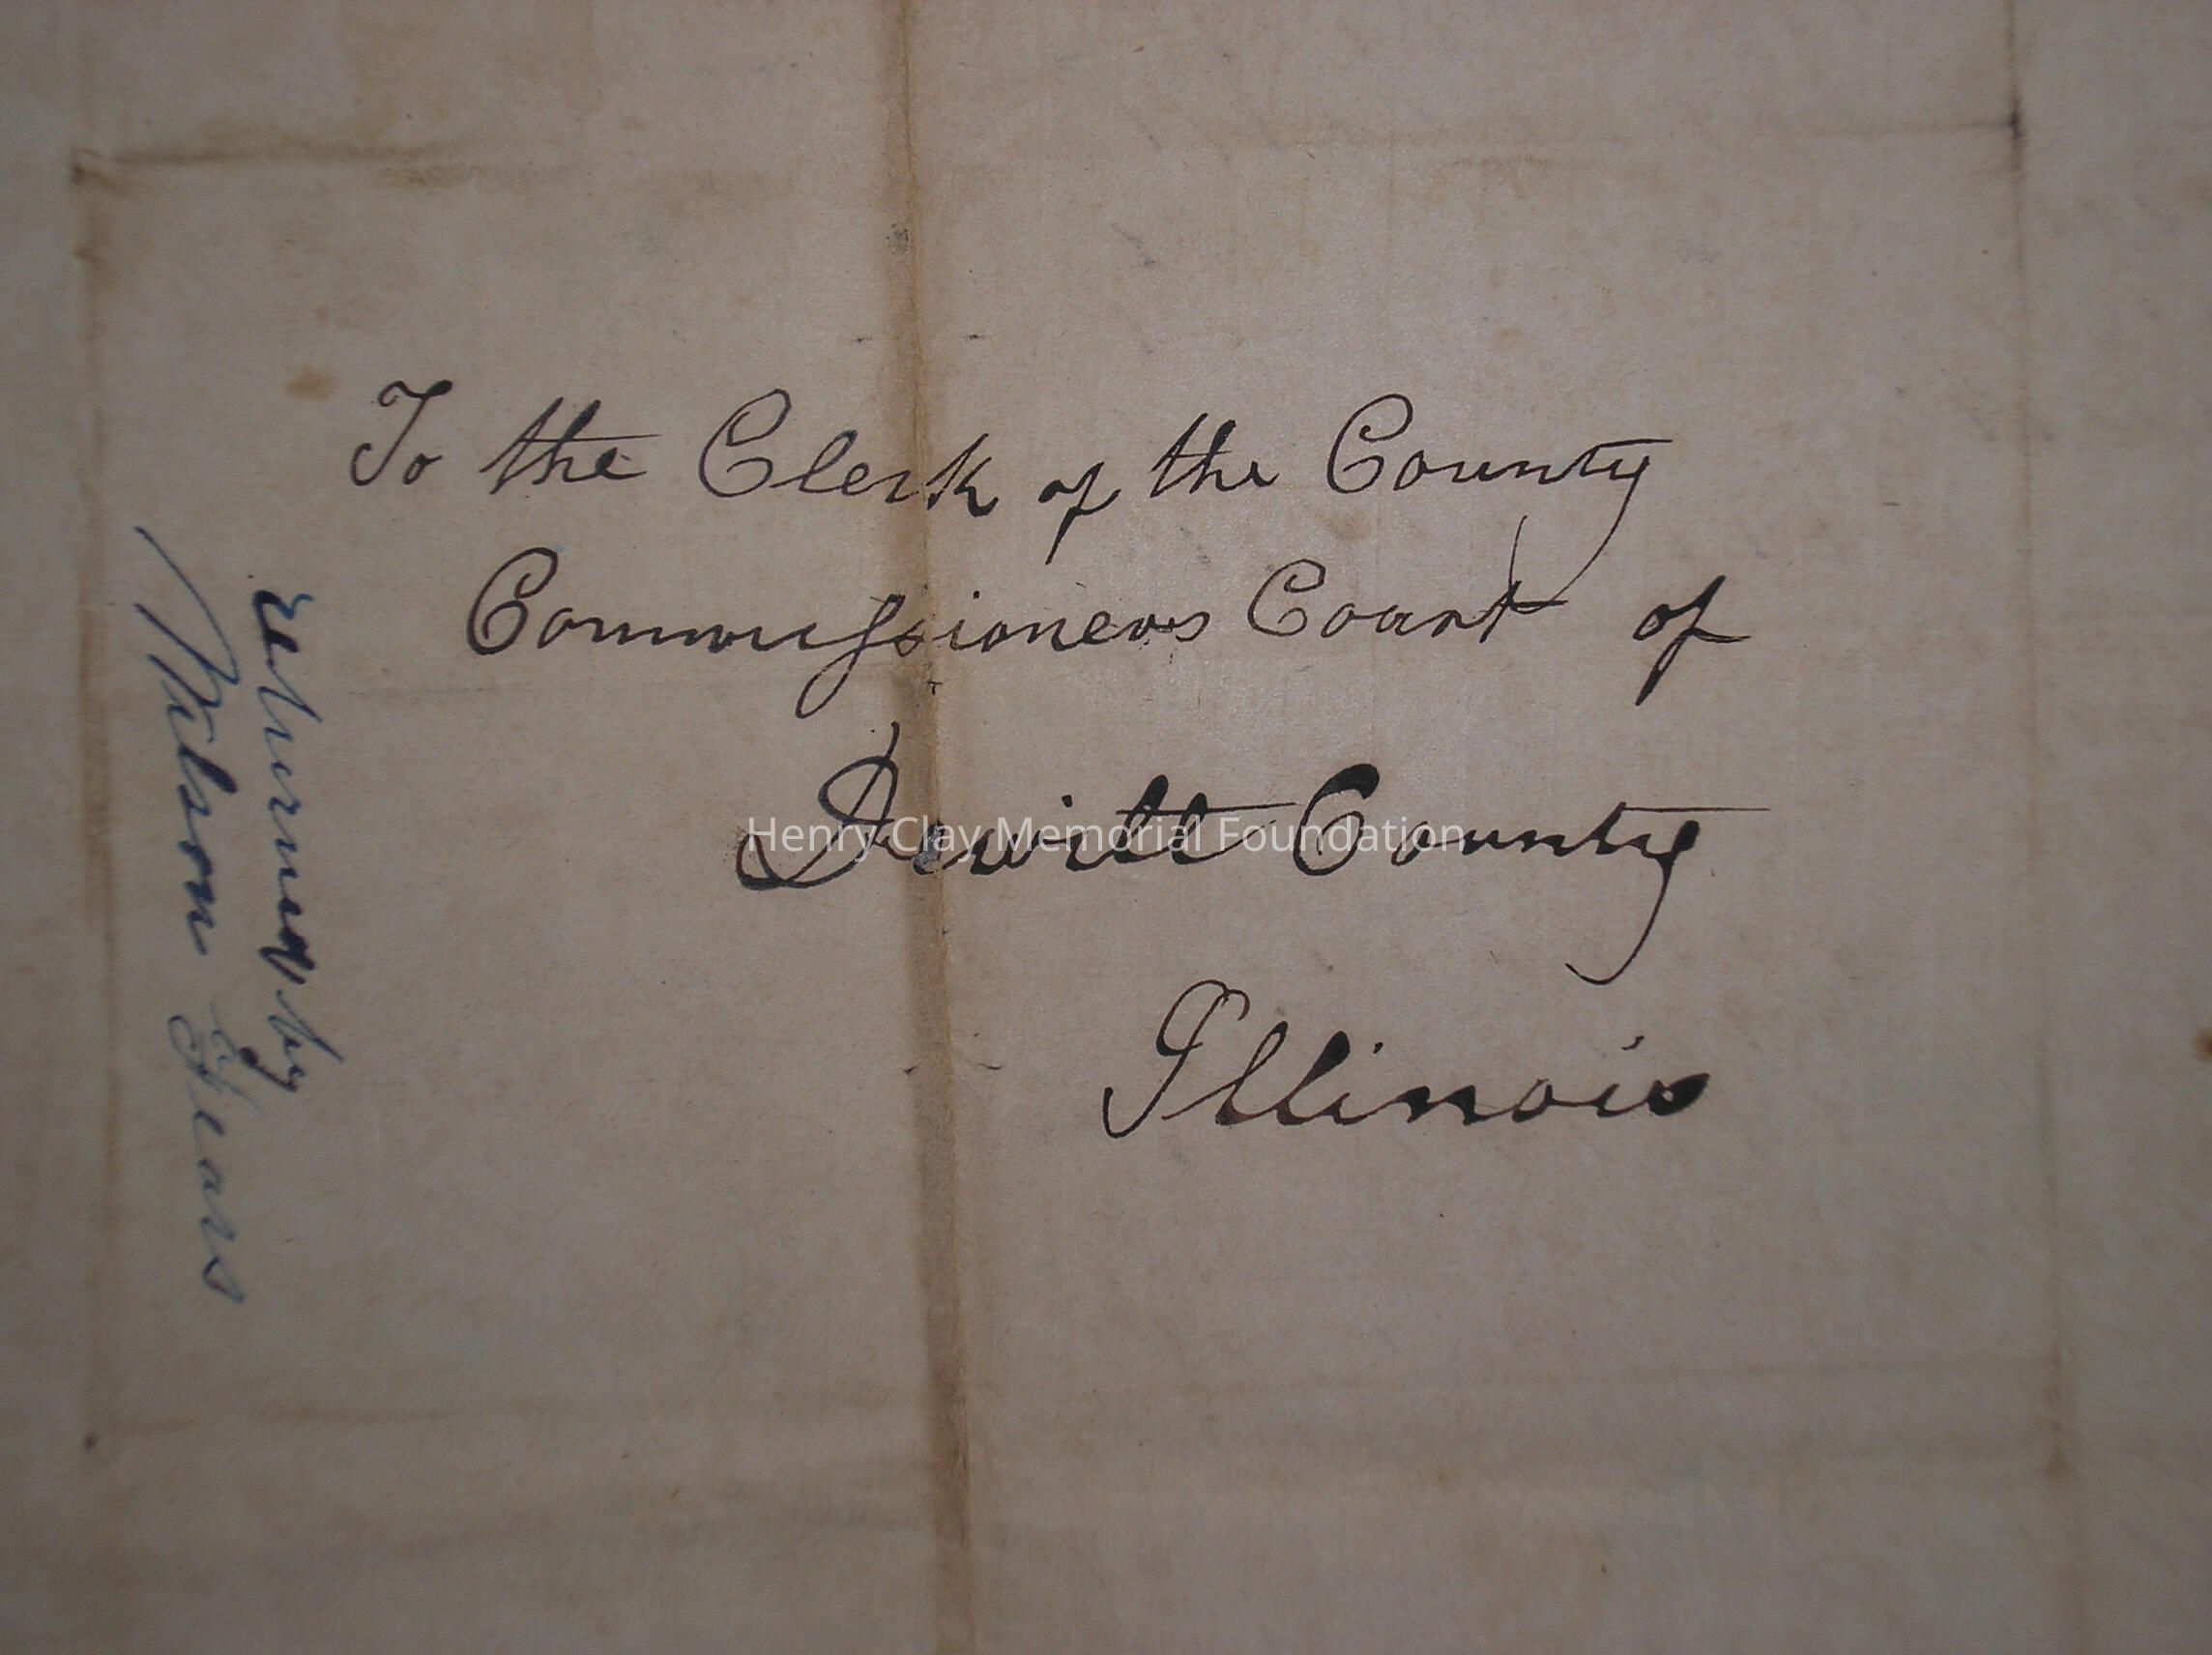 To the Clerk of the County
Commissioners Court of
Dewitt County
Illinois
returned by
Wilson Fears
Henry Clay Memorial Foundation